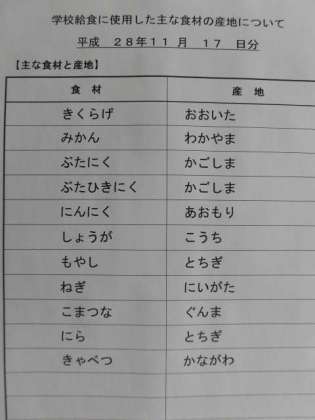 学校給食に使用した主な食材の産地について
平成 28年11 月 17 日分
【主な食材と産地】
食 材 産 地
きくらげ おおいた
みかん わかやま
ぶたにく かごしま
ぶたひきにく かごしま
にんにく あおもり
しょうが こうち
もやし とちぎ
ねぎ にいがた
こまつな ぐんま
にら とちぎ
きゃべつ かながわ